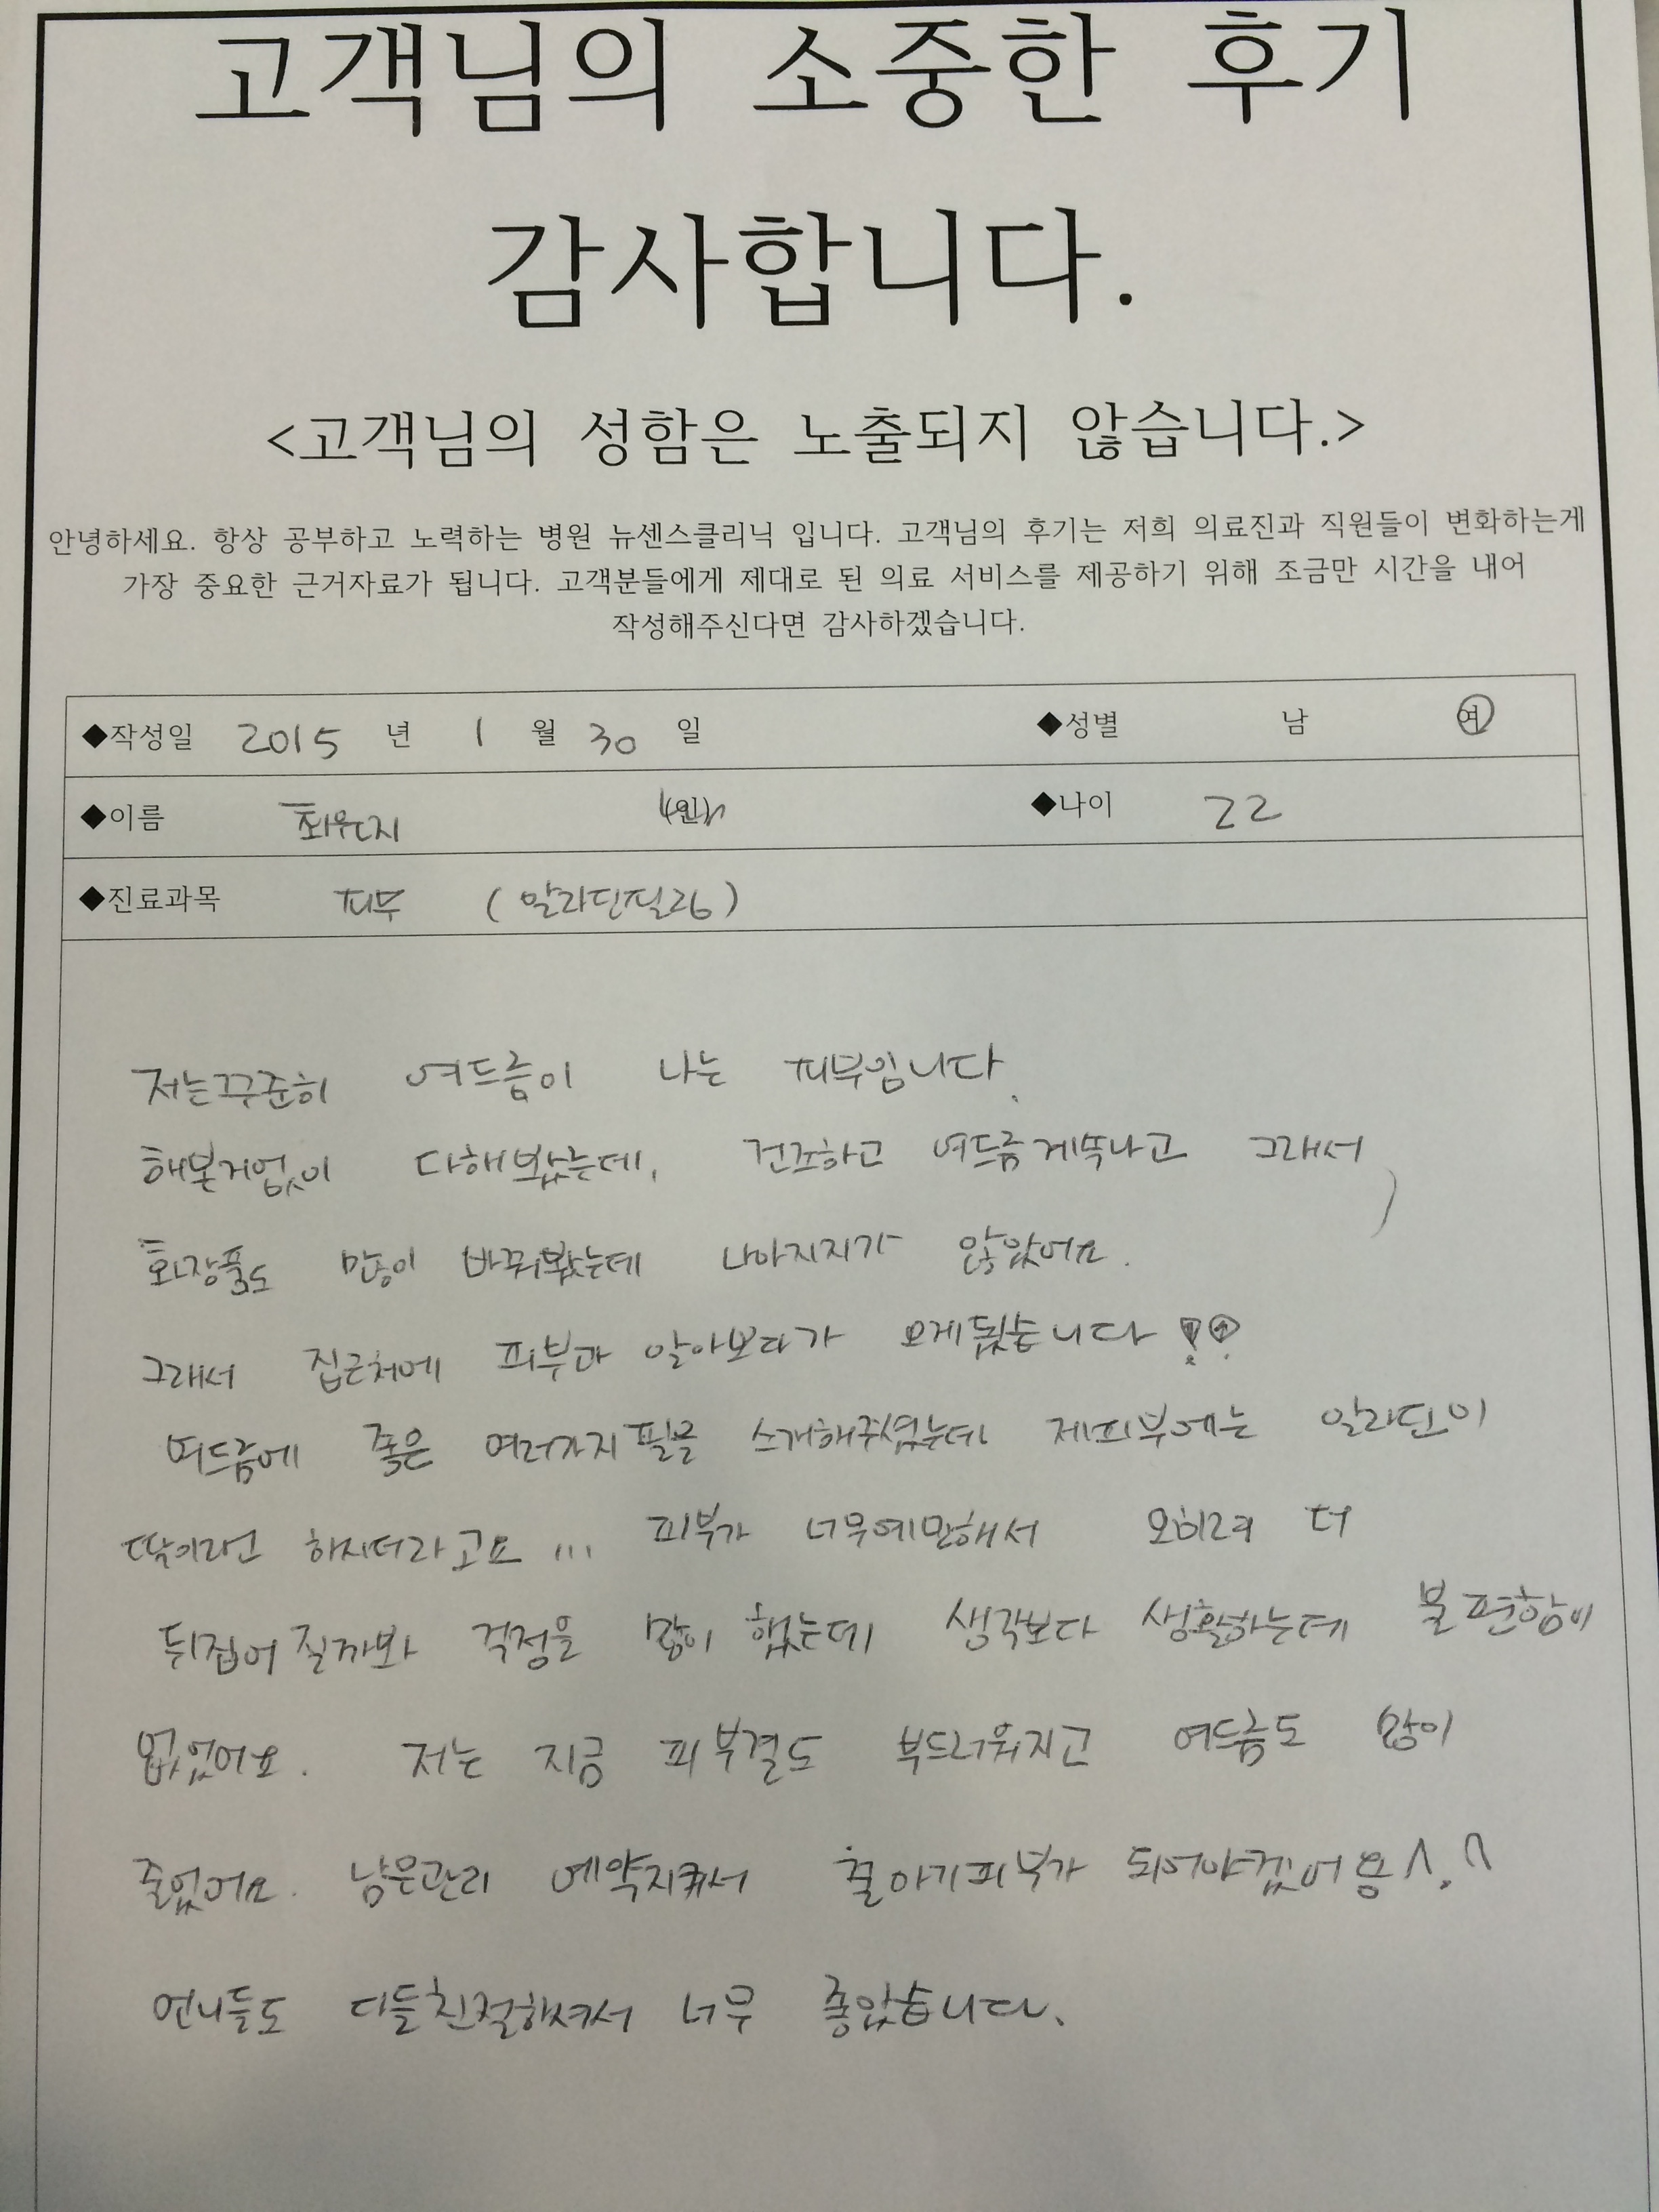 고객님의 소중한 후기
감사합니다.
<고객님의 성함은 노출되지 않습니다.>
안녕하세요. 항상 공부하고 노력하는 병원 뉴센스클리닉 입니다. 고객님의 후기는 저희 의료진과 직원들이 변화하는게
가장 중요한 근거자료가 됩니다. 고객분들에게 제대로 된 의료 서비스를 제공하기 위해 조금만 시간을 내어
작성해주신다면 감사하겠습니다.
◆작성일 2015 년 1 월 30 일 ◆성별 남 여
◆이름 최윤지 ◆나이 22
◆진료과목 피부 (알라딘필링)
저는꾸준히 여드름이 나는 피부입니다.
해본거없이 다해봤는데, 건조하고 여드름계속나고 그래서
화장품도 많이 바꿔봤는데 나아지지가 않았어요.
그래서 집근처에 피부과 알아보다가 오게됬습니다
여드름에 좋은 여러가지필을 소개해주셨는데 제피부에는 알라딘이
딱이라고 하시더라고요... 피부가 너무예민해서 오히려 더
뒤집어질까봐 걱정을 많이 했는데 생각보다 생활하는데 불편함이
없었어요. 저는 지금 피부결도 부드러워지고 여드름도 많이
줄었어요. 남은관리 예약지켜서 꿀아기피부가 되어야겠어용^.^
언니들도 다들친절하셔서 너무 좋았습니다.